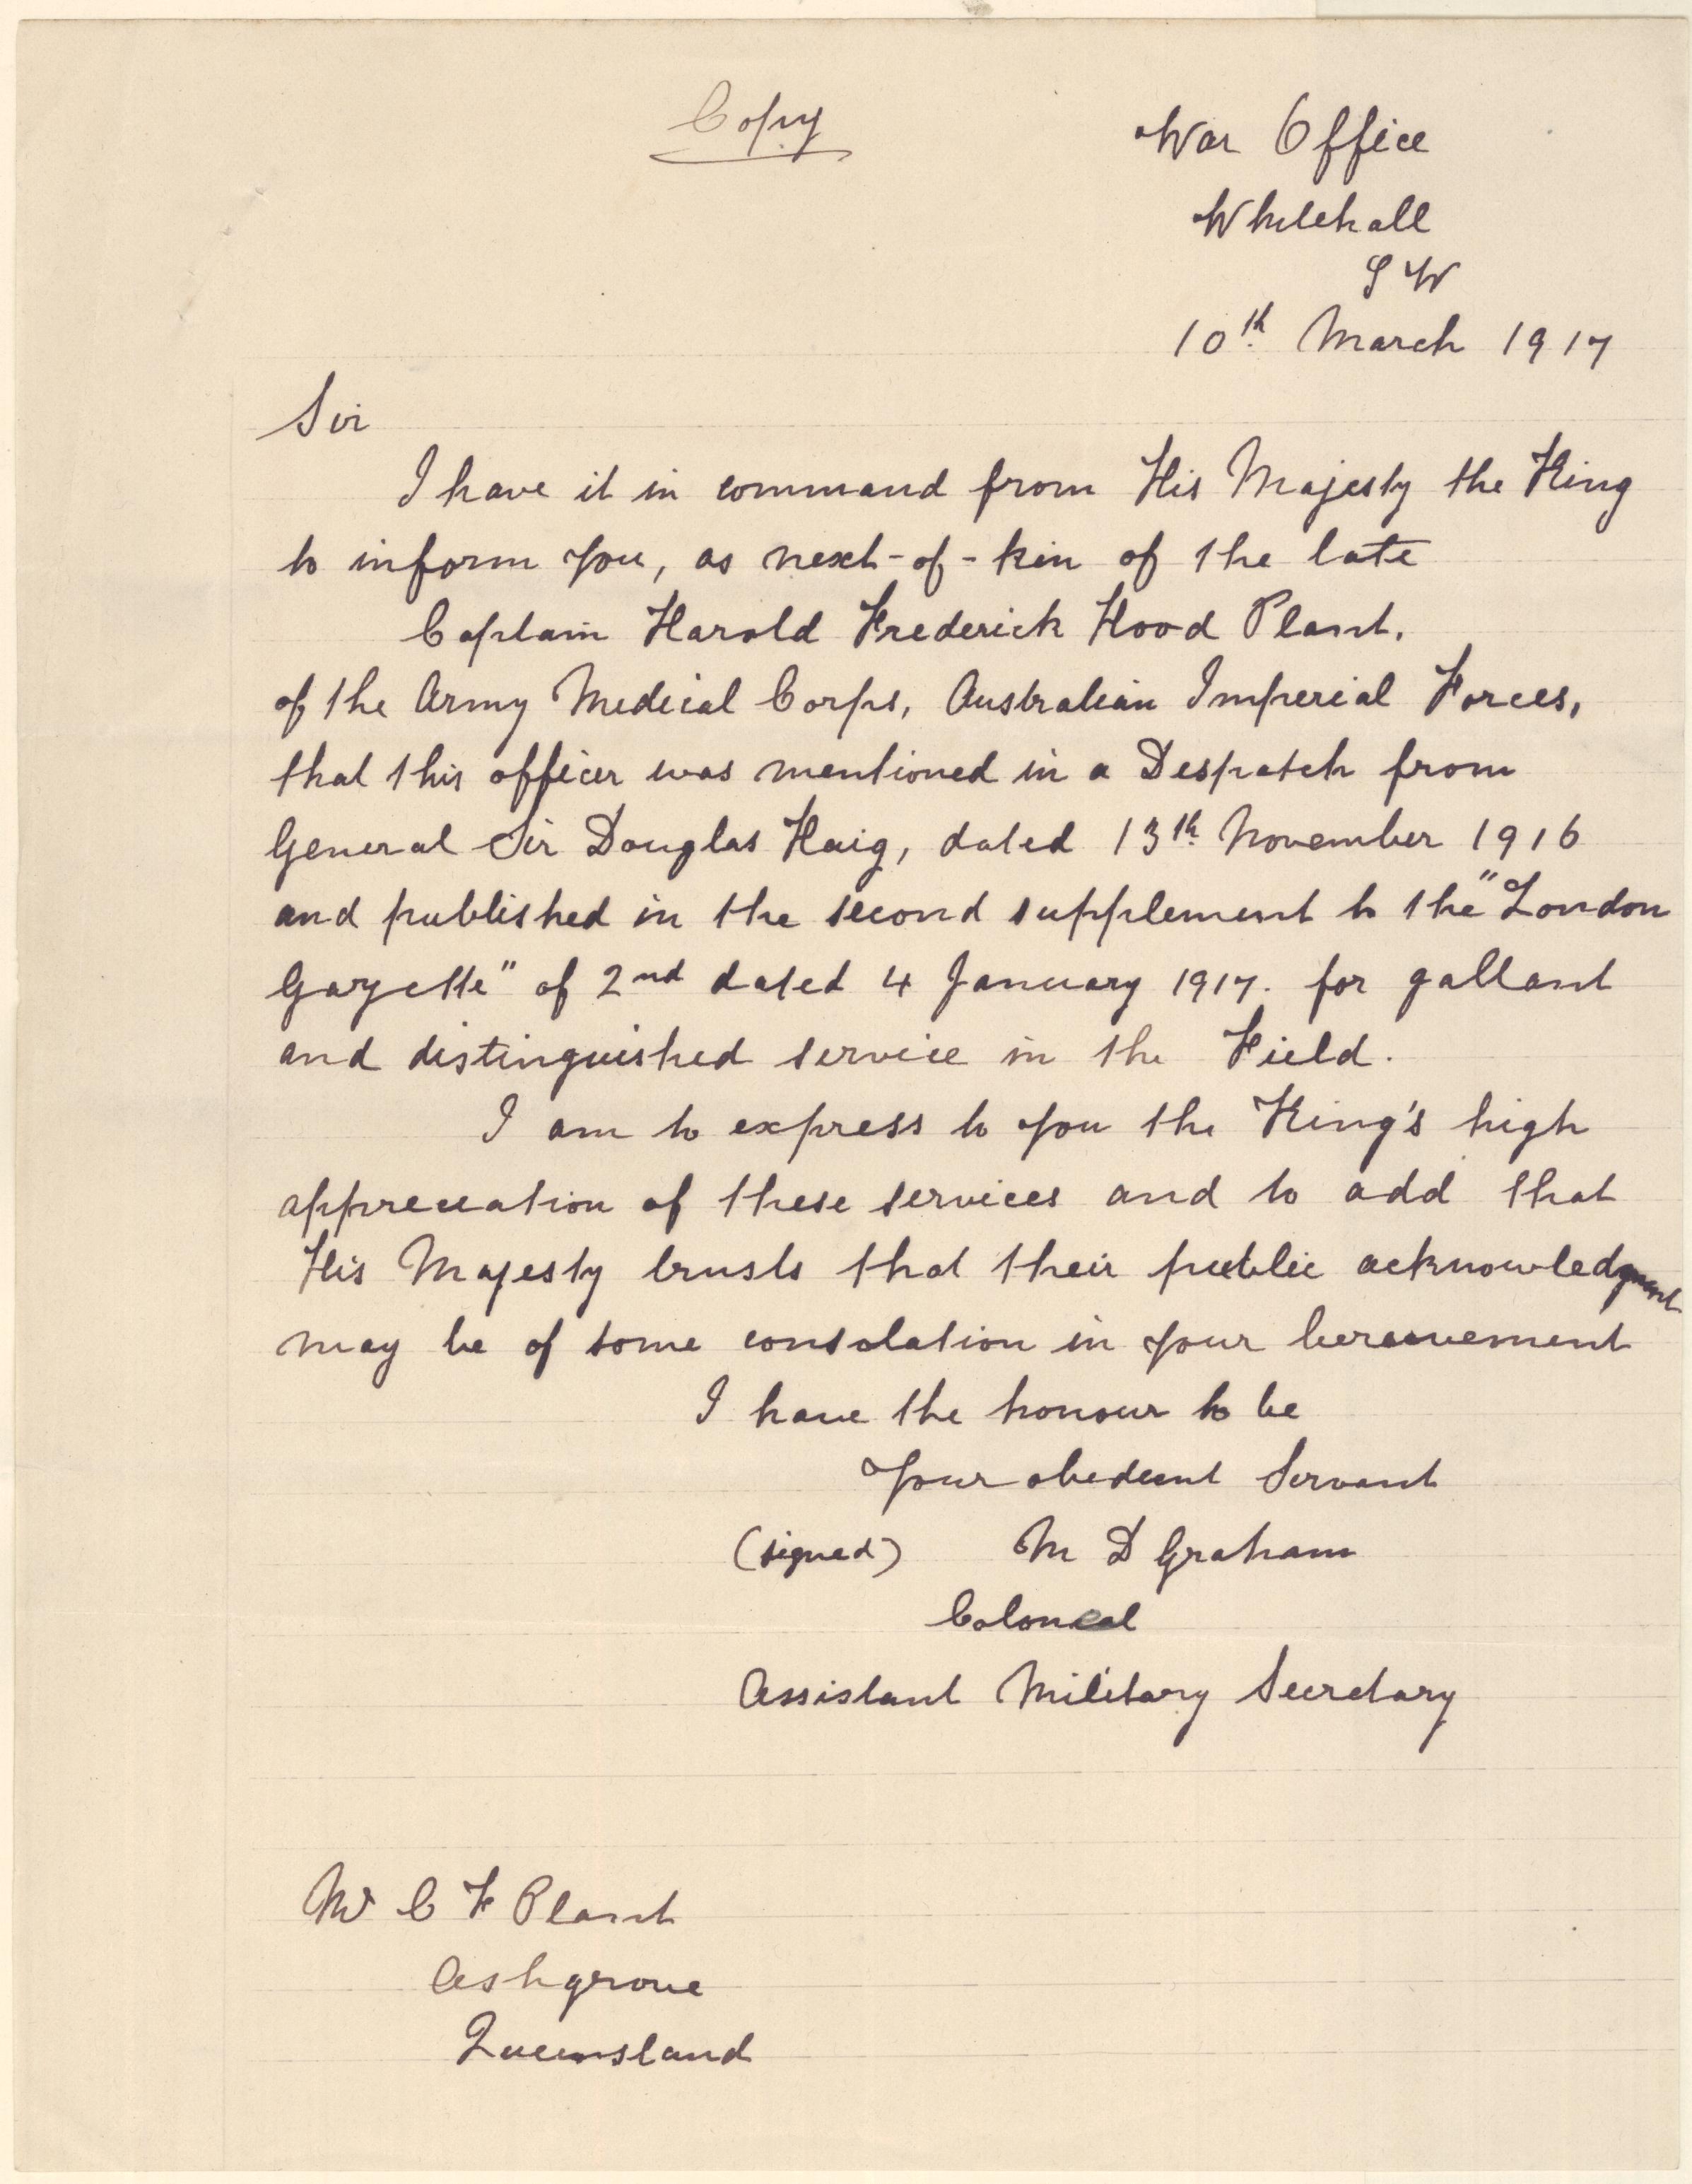 Copy
War Office
Whitehall
S W
10th March 1917
Sir
I have it in command from His Majesty the King
to inform you, as next-of-kin of the late
Captain Harold Frederick Hood Plant.
of the Army Medical Corps, Australian Imperial Forces,
that this officer was mentioned in a Despatch from
General Sir Douglas Haig, dated 13th November 1916
and published in the second supplement to the "London
Gazette" of 2nd dated 4 January 1917. for gallant
and distinguished service in the Field.
I am to express to you the King's high
appreciation of these services and to add that
His Majesty trusts that their public acknowledgment
may be of some consolation in your bereavement
I have the honour to be
Your obedient Servant
(signed) M D Graham
Colonel
Assistant Military Secretary
Mr C F Plant
Ashgrove
Queensland